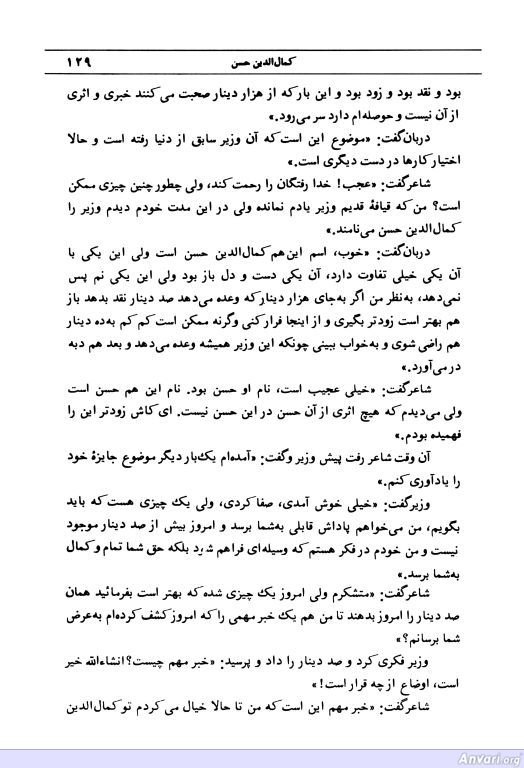 کمال‌الدین حسن ۱۲۹
بود و نقد بود و زود بود و این بار که از هزار دینار صحبت می‌کنند خبری و اثری
از آن نیست و حوصله‌ام دارد سر می‌رود.»
دربان گفت: «موضوع این است که آن وزیر سابق از دنیا رفته است و حالا
اختیار کارها در دست دیگری است.»
شاعر گفت: «عجب! خدا رفتگان را رحمت کند، ولی چطور چنین چیزی ممکن
است؟ من که قیافهٔ قدیم وزیر یادم نمانده ولی در این مدت خودم دیدم وزیر را
کمال‌الدین حسن می‌نامند.»
دربان گفت: «خوب، اسم این هم کمال‌الدین حسن است ولی این یکی با
آن یکی خیلی تفاوت دارد، آن یکی دست و دل باز بود ولی این یکی نم پس
نمی‌دهد، به‌نظر من اگر به‌جای هزار دینار که وعده می‌دهد صد دینار نقد بدهد باز
هم بهتر است زودتر بگیری و از اینجا فرار کنی وگرنه ممکن است کم کم به‌ده دینار
هم راضی شوی و به‌خواب ببینی چونکه این وزیر همیشه وعده می‌دهد و بعد هم دبه
در می‌آورد.»
شاعر گفت: «خیلی عجیب است، نام او حسن بود. نام این هم حسن است
ولی می‌دیدم که هیچ اثری از آن حسن در این حسن نیست. ای کاش زودتر این را
فهمیده بودم.»
آن وقت شاعر رفت پیش وزیر و گفت: «آمده‌ام یک‌بار دیگر موضوع جایزهٔ خود
را یادآوری کنم.»
وزیر گفت: «خیلی خوش آمدی، صفا کردی، ولی یک چیزی هست که باید
بگویم، من می‌خواهم پاداش قابلی به‌شما برسد و امروز بیش از صد دینار موجود
نیست و من خودم در فکر هستم که وسیله‌ای فراهم شود بلکه حق شما تمام و کمال
به‌شما برسد.»
شاعر گفت: «متشکرم ولی امروز یک چیزی شده که بهتر است بفرمائید همان
صد دینار را امروز بدهند تا من هم یک خبر مهمی را که امروز کشف کرده‌ام به‌عرض
شما برسانم؟»
وزیر فکری کرد و صد دینار را داد و پرسید: «خبر مهم چیست؟ انشاءالله خیر
است، اوضاع از چه قرار است!»
شاعر گفت: «خبر مهم این است که من تا حالا خیال می‌کردم تو کمال‌الدین
Anvari.org